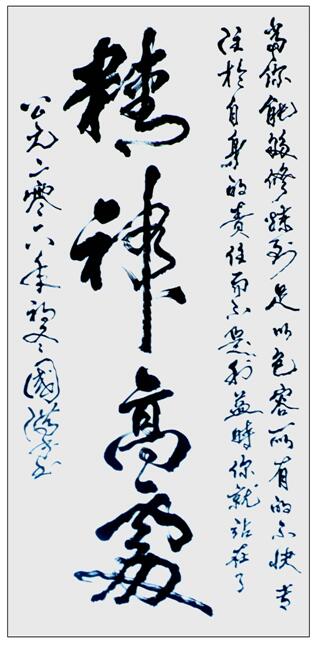 當你能够修煉到足以包容所有的不快专
注於自身的責任而不是利益時你就站在了
精神高處
公元二零六年初冬國書